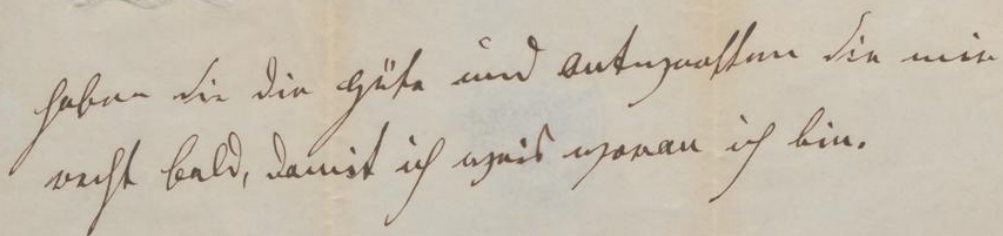 haben Sie die Güte und antworthen Sie mir
recht bald, damit ich weis woran ich bin.